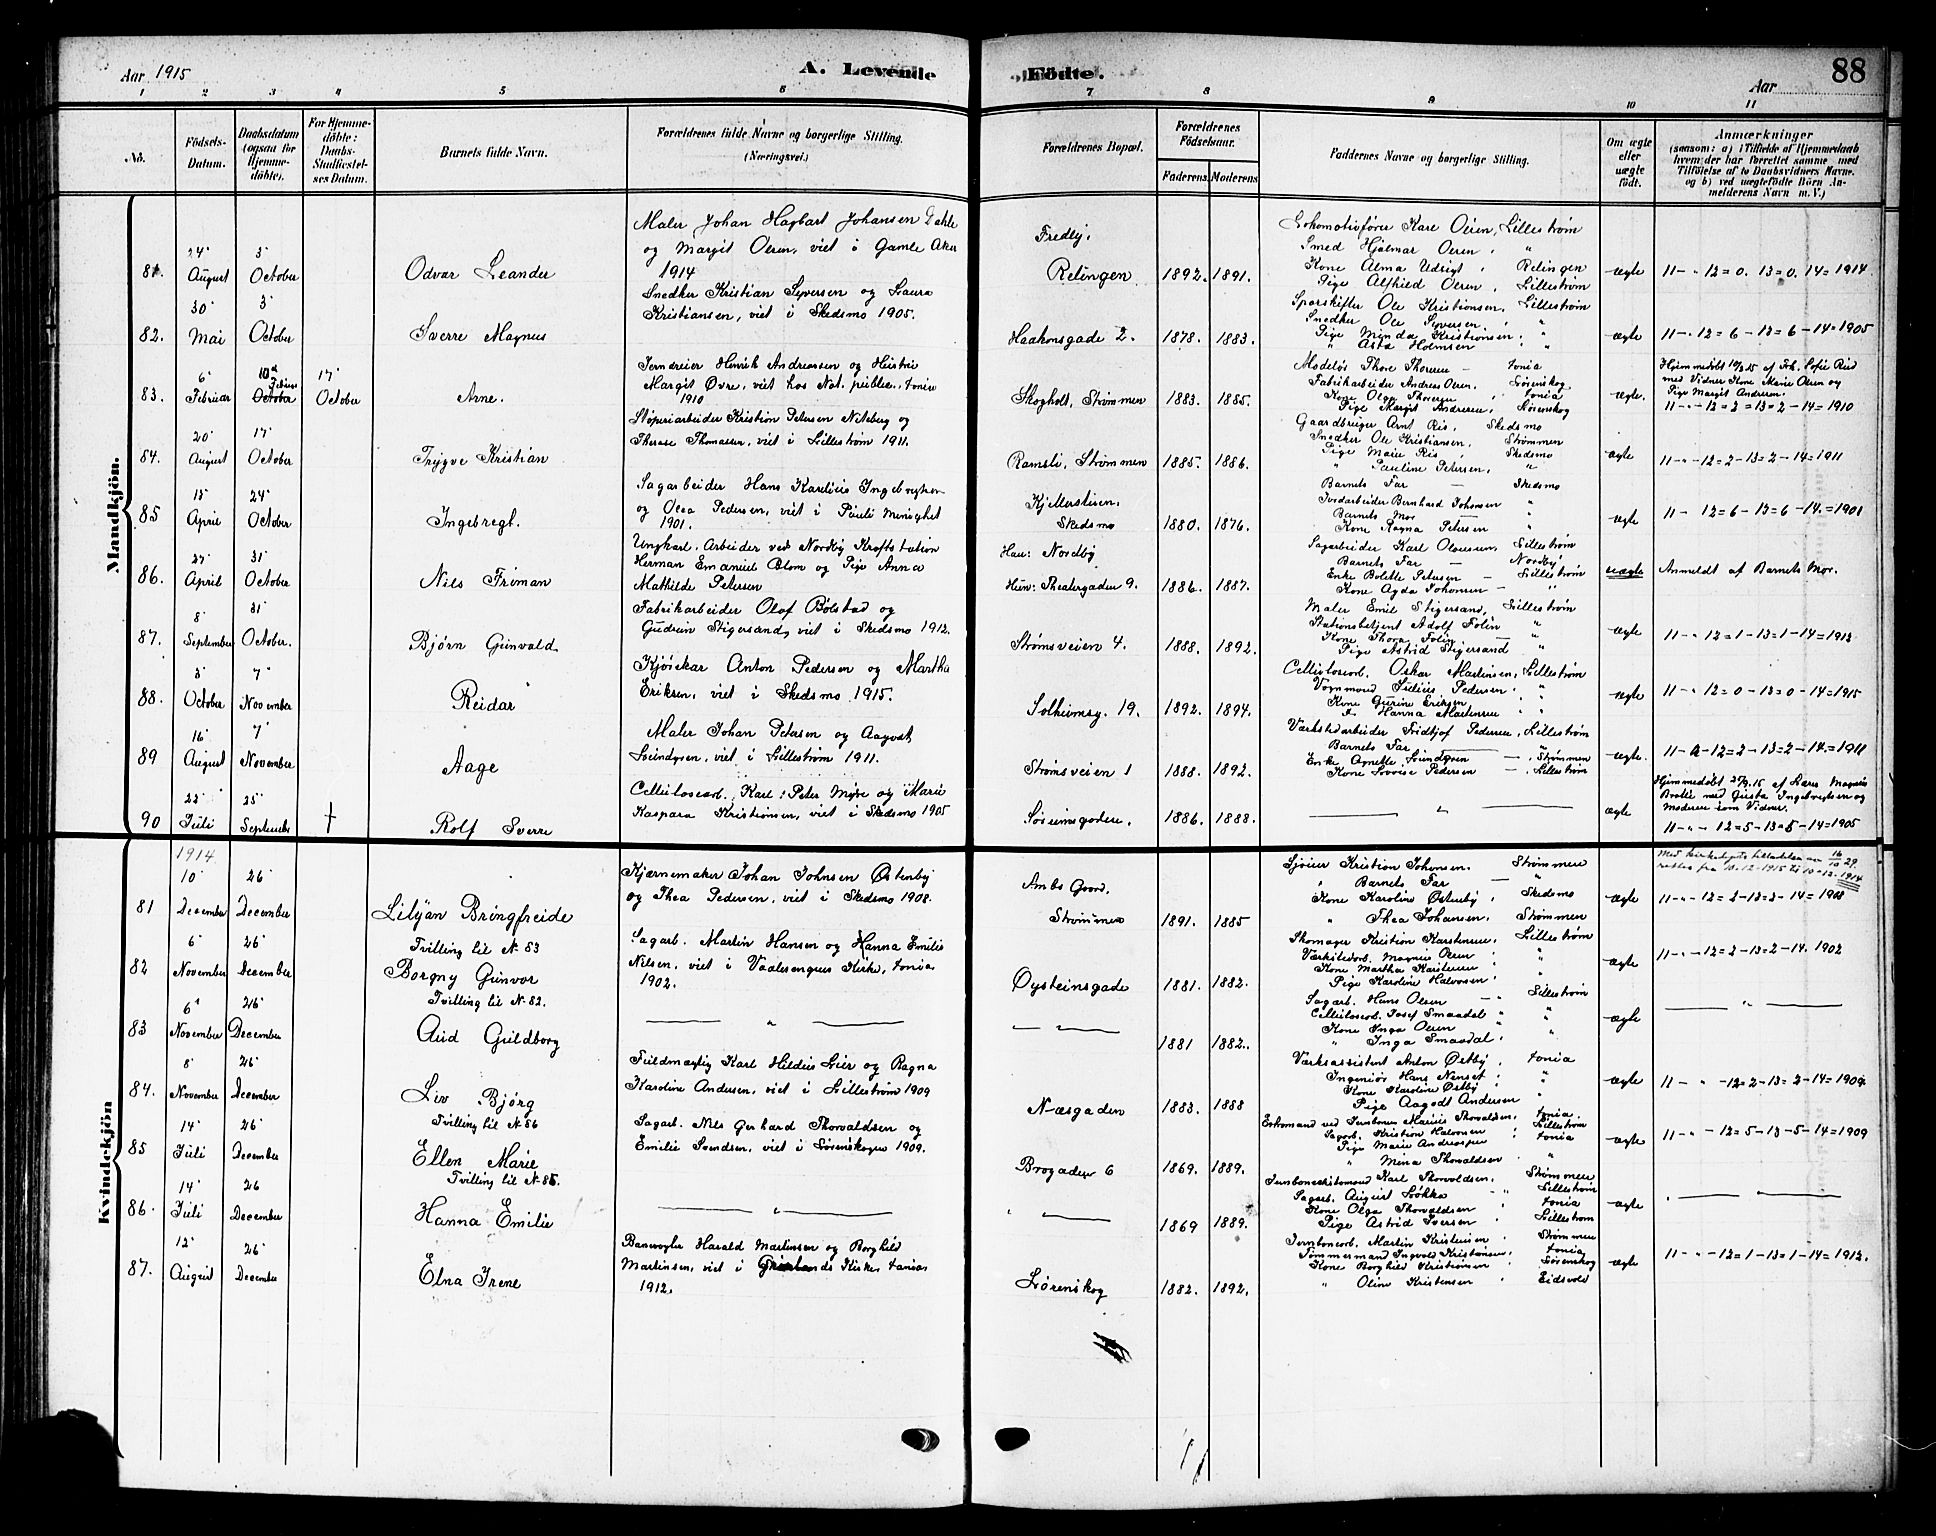 Aar 1915
A. Levende
Födte.
88
Aar
1 2 3 4 5 6 7 8 9 10 11
No.
Födsels-
Datum.
Daabsdatum
(ogsaa for
Hjemme-
döbte).
For Hjemme-
döbte:
Daabs-
Stadfæstel-
ses Datum.
Barnets fulde Navn.
Forældrenes fulde Navne og borgerlige Stilling.
(Næringsvei.)
Forældrenes Bopæl.
Forældrenes
Födselsaar.
Faderens.
Moderens
Faddernes Navne og borgerlige Stilling.
Om ægte
eller
uægte
födt.
Anmærkninger
(saasom: a) i Tilfælde af Hjemmedaab
hvem der har forrettet samme med
Tilföielse af to Daabsvidners Navne.
og b) ved uægtefödte Börn An-
melderens Navn m. V.)
Mandkjön.
81. 24' August 3' October
Odvar Leander
Maler Johan Hagbart Johansen Dahle
og Margit Oeren, viet i Gamle Aker
1914
Fredly,
Relingen
1892. 1891.
Lokomotivfører Kare Oeren, Lillestrøm
Smed Hjalmar Oeren, "
Kone Alma Udsigt, Relingen
Pige Alfhild Oeren, Lillestrøm
ægte
11 - " 12 = 0. 13 = 0. 14 = 1914.
82. 30' Mai 3' October
Sverre Magnus
Snedker Kristian Syversen og Laura
Kristiansen, viet i Skedsmo 1905.
Haakonsgade 2.
1878. 1883.
Sporskifter Ole Kristiansen, Lillestrøm
Snedker Ole Syversen, "
Pige Minda Kristiansen, "
" Asta Holmsen "
ægte
11 - " 12 = 6 - 13 = 6 - 14 = 1905
83. 6' Februar 10' Februar October 17' October
Arne.
Jerndreier Henrik Andreassen og Hustru
Margit Øvre, viet hos Not. publ., Xania
1910
Skogholt, Strømmen
1883. 1885.
Fabrikarbeider Andreas Oeren, Lørenskog
Pige Margit Andresen, Lørenskog
ægte.
11 - " - 12 = 2 = 13 = 2 - 14 = 1910
84. 20' August 17' October
Trygve Kristian
Støperiarbeider Kristian Petersen Niteberg og
Therese Thomassen, viet i Lillestrøm 1911.
Ramsli, Strømmen
1885. 1886.
Gaardbruger Arnt Ris, Skedsmo
Snedker Ole Kristiansen, Strømmen
Pige Marie Ris, Skedsmo
" Pauline Petersen, "
ægte
11 - " - 12 = 2 - 13 = 2 - 14 = 1911
85 13' April 24' October
Ingebregt.
Sagarbeider Hans Karelius Ingebregtsen
og Olea Pedersen, viet i Pauli Menighet
1901.
Kjellerstuen.
Skedsmo
1880. 1876.
Barnets Far — Skedsmo
Jordarbeider Bernhard Johansen "
Barnets Mor — "
Kone Ragna Petersen "
ægte
11 - 12 = 6 - 13 = 6 - 14 = 1901
86. 27' April 31' October
Nils Friman
Ungkarl. Arbeider ved Nordby Kraftstation
Herman Emanuel Blom og Pige Anna
Mathilde Petersen
Han: Nordby
Hun: Theatergaden 9.
1886. 1887.
Sagarbeider Karl Olaussen, Lillestrøm
Barnets Far — Nordby
Enke Bolette Petersen — Lillestrøm
Kone Agda Johansen — "
uægte
Anmeldt af Barnets Mor.
87. 8' September 31' October.
Bjørn Gunvald
Fabrikarbeider Olaf Bølstad og
Gudrun Stigersand, viet i Skedsmo 1912.
Strømsveien 4.
1888. 1892.
Maler Emil Stigersand, Lillestrøm
Stationsbetjent Adolf Folin "
Kone Thora Folin — "
Pige Astrid Stigersand "
ægte
11 - " 12 = 1 - 13 = 1 - 14 = 1912
88. 3' October 7' November
Reidar
Kjørekar Anton Pedersen og Martha
Eriksen, viet i Skedsmo 1915.
Solheimsg. 19.
1892. 1894.
Cellulosearb. Oskar Martinsen, Lillestrøm
Vognmand Julius Pedersen, "
Kone Gurine Eriksen "
Hanna Martinsen "
ægte
11 - " 12 = 0 - 13 = 0 - 14 = 1915
89 16' August 7' November
Aage
Maler Johan Petersen og Aagot
Lundgren, viet i Lillestrøm 1911.
Strømsveien 1
1888. 1892.
Værkstedarbeider Fridtjof Pedersen, Lillestrøm
Barnets Far — "
Enke Agnette Lundgren — Strømmen
Kone Lovise Pedersen — Lillestrøm
ægte
11 - " - 12 = 2 - 13 = 2 - 14 = 1911
90 22' Juli 25' September †
Rolf Sverre
Cellulosearb. Karl Peter Myhre og Marie
Kaspara Kristiansen, viet i Skedsmo 1905
1886. 1888.
ægte
Hjemmedøbt 25/9.15 af Lars Magnus
Bratli med Gusta Ingebregtsen og
Moderen som Vidner.
11 - " - 12 = 5 - 13 = 5 - 14 = 1905
Kvindekjön
81 1914 10' December 26' December
Lilyan Bringfreide
Kjærnemaker Johan Johnsen Østenby
og Thea Pedersen, viet i Skedsmo 1908.
Ambs Gaard.
Strømmen
1891. 1885
Kristian Johansen. Strømmen
Barnets Far — "
Kone Karoline Østenby, Skedsmo
" Thea Johansen, Strømmen
ægte
rettet fra 10-12-1915 til 10-12-1914
11 - " - 12 = 2 - 13 = 2 - 14 = 1908
82 6' November 26' December
Tvilling til No 83
Borgny Gunvor
Sagarb. Martin Hansen og Hanna Emilie
Nilsen, viet i Vaalerengens Kirke, Xania
1902.
Øysteinsgade
1881. 1882.
Skomager Kristian Karstensen, Lillestrøm
Værkstedarb. Magnus Oeren "
Kone Martha Karstensen "
Pige Karoline Halvorsen "
ægte
11 - " - 12 = 2 - 13 = 2 - 14. 1902
83 6' November 26' December
Tvilling til No 82.
Aud Guldborg
— " —
1881 1882.
Sagarb. Hans Olsen — Lillestrøm
Cellulosearb. Josef Smaadal "
Kone Inga Oeren "
" Inga Smaadal "
ægte
— " —
84. 8' November 26' December
Liv Bjørg
Fuldmægtig Karl Hildus Lier og Ragna
Karoline Andersen, viet i Lillestrøm 1909
Næsgaden
1883. 1888
Værksassistent Anton Østby, Xania
Ingeniør Hans Nenset, "
Kone Karoline Østby, "
Pige Aagodt Andersen "
ægte
11 - " - 12 = 2 - 13 = 2 - 14 = 1909
85 14' Juli 26' December
Tvilling til No 86
Ellen Marie
Sagarb. Nils Gerhard Thorvaldsen og
Emilie Svendsen, viet i Lørenskogen 1909.
Brogaden 6
1869. 1889.
Sagarb. Kristian Halvorsen Lillestrøm
Pige Marie Andreassen Xania
" Mina Thorvaldsen "
ægte
11 - " - 12 = 5 - 13 - 5 - 14 = 1909
86. 14' Juli 26 December
Tvilling til No 85.
Hanna Emilie
— " —
1869 1889.
Karl Thorvaldsen, Strømmen
Sagarb. August Løkke " Lillestrøm
Kone Olga Thorvaldsen Xania
Pige Astrid Iversen Lillestrøm
ægte
— " —
87. 12' August 26' December
Elna Irene
Banevogter Harald Martinsen og Borghild
Martinsen, viet i Grønlands Kirke, Xania
1912.
Lørenskog
1882. 1892.
Jernbanearb. Martin Kristensen, Strømmen
Tømmermand Ingvald Kristiansen, Xania
Kone Borghild Kristiansen Lørenskog
" Oline Kristensen Eidsvold
ægte
11 - " - 12 = 1 - 13 = 1 - 14 = 1912.